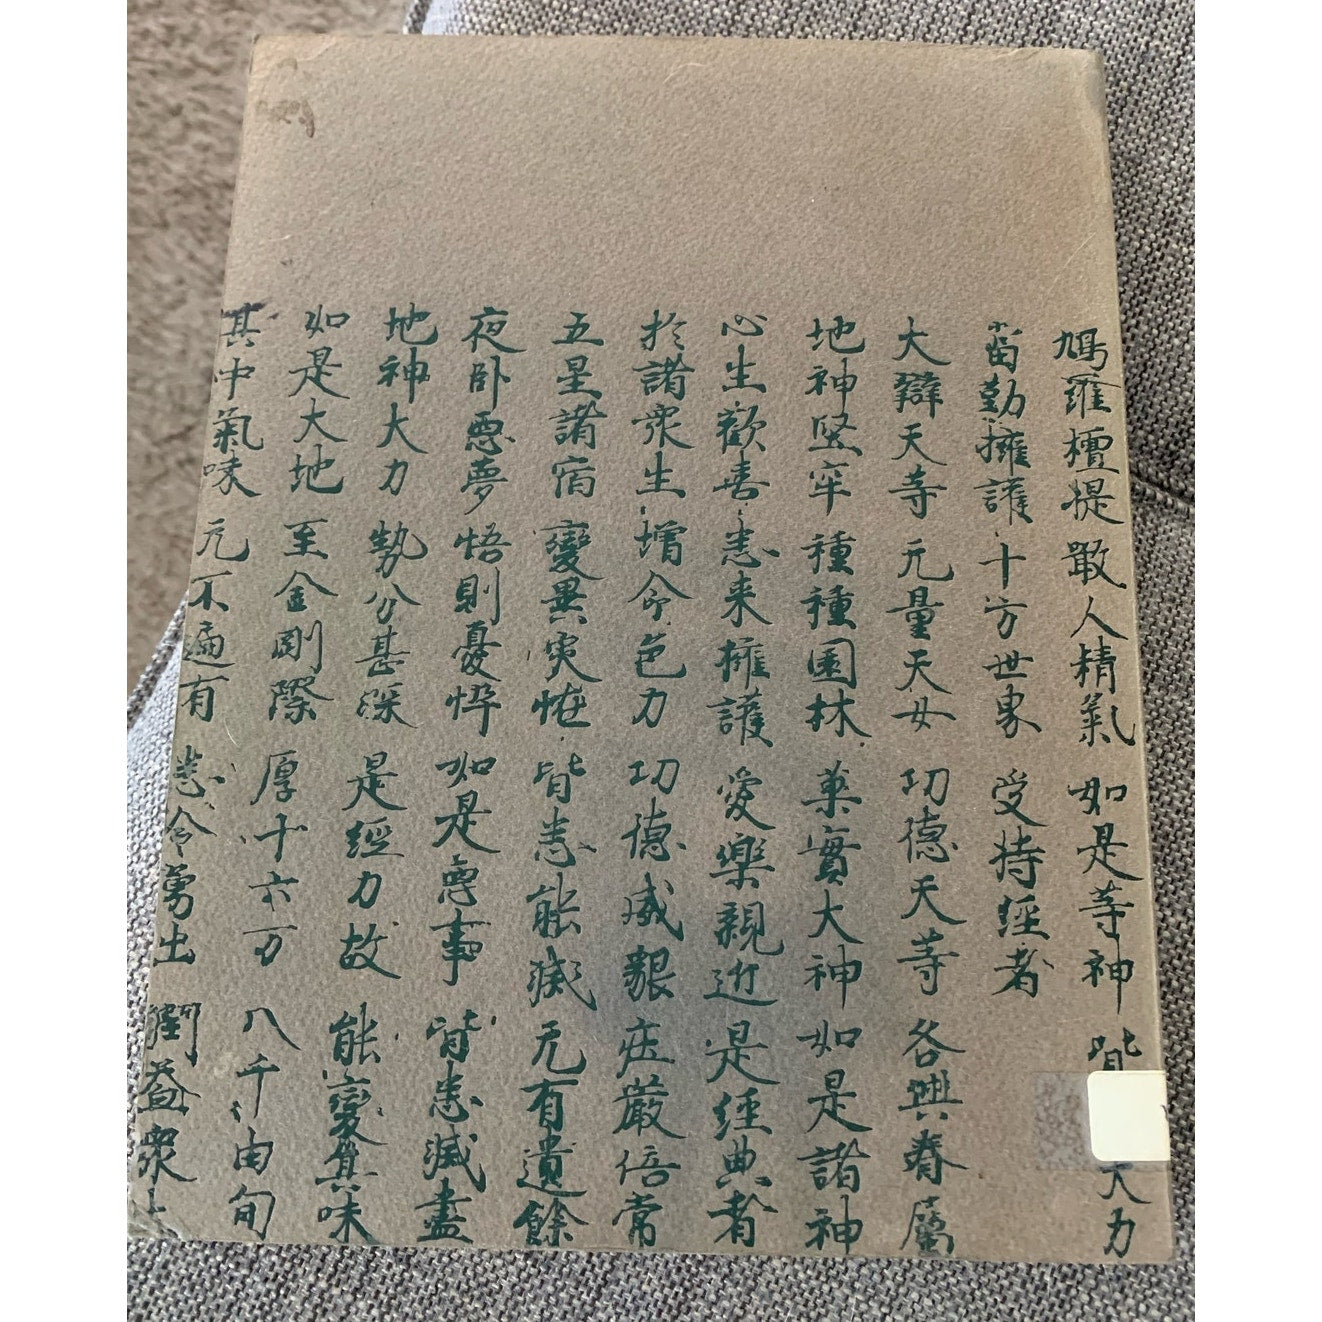 鳩羅檀提 敢人精氣 如是等神 皆 大力
常勤擁護 十方世界 受持經者
大辯天等 无量天女 功德天等 各與眷屬
地神堅牢 種種園林 菓實大神 如是諸神
心生歡喜 悉来擁護 愛樂親近 是經典者
於諸衆生 增命色力 功德威貌 莊嚴倍常
五星諸宿 變異災怪 皆悉能滅 无有遺餘
夜卧惡夢 悟則憂悴 如是惡事 皆悉滅盡
地神大力 勢分甚深 是經力故 能變其味
如是大地 至金剛際 厚十六万 八千由旬
其中氣味 无不遍有 悉令勇出 潤益衆